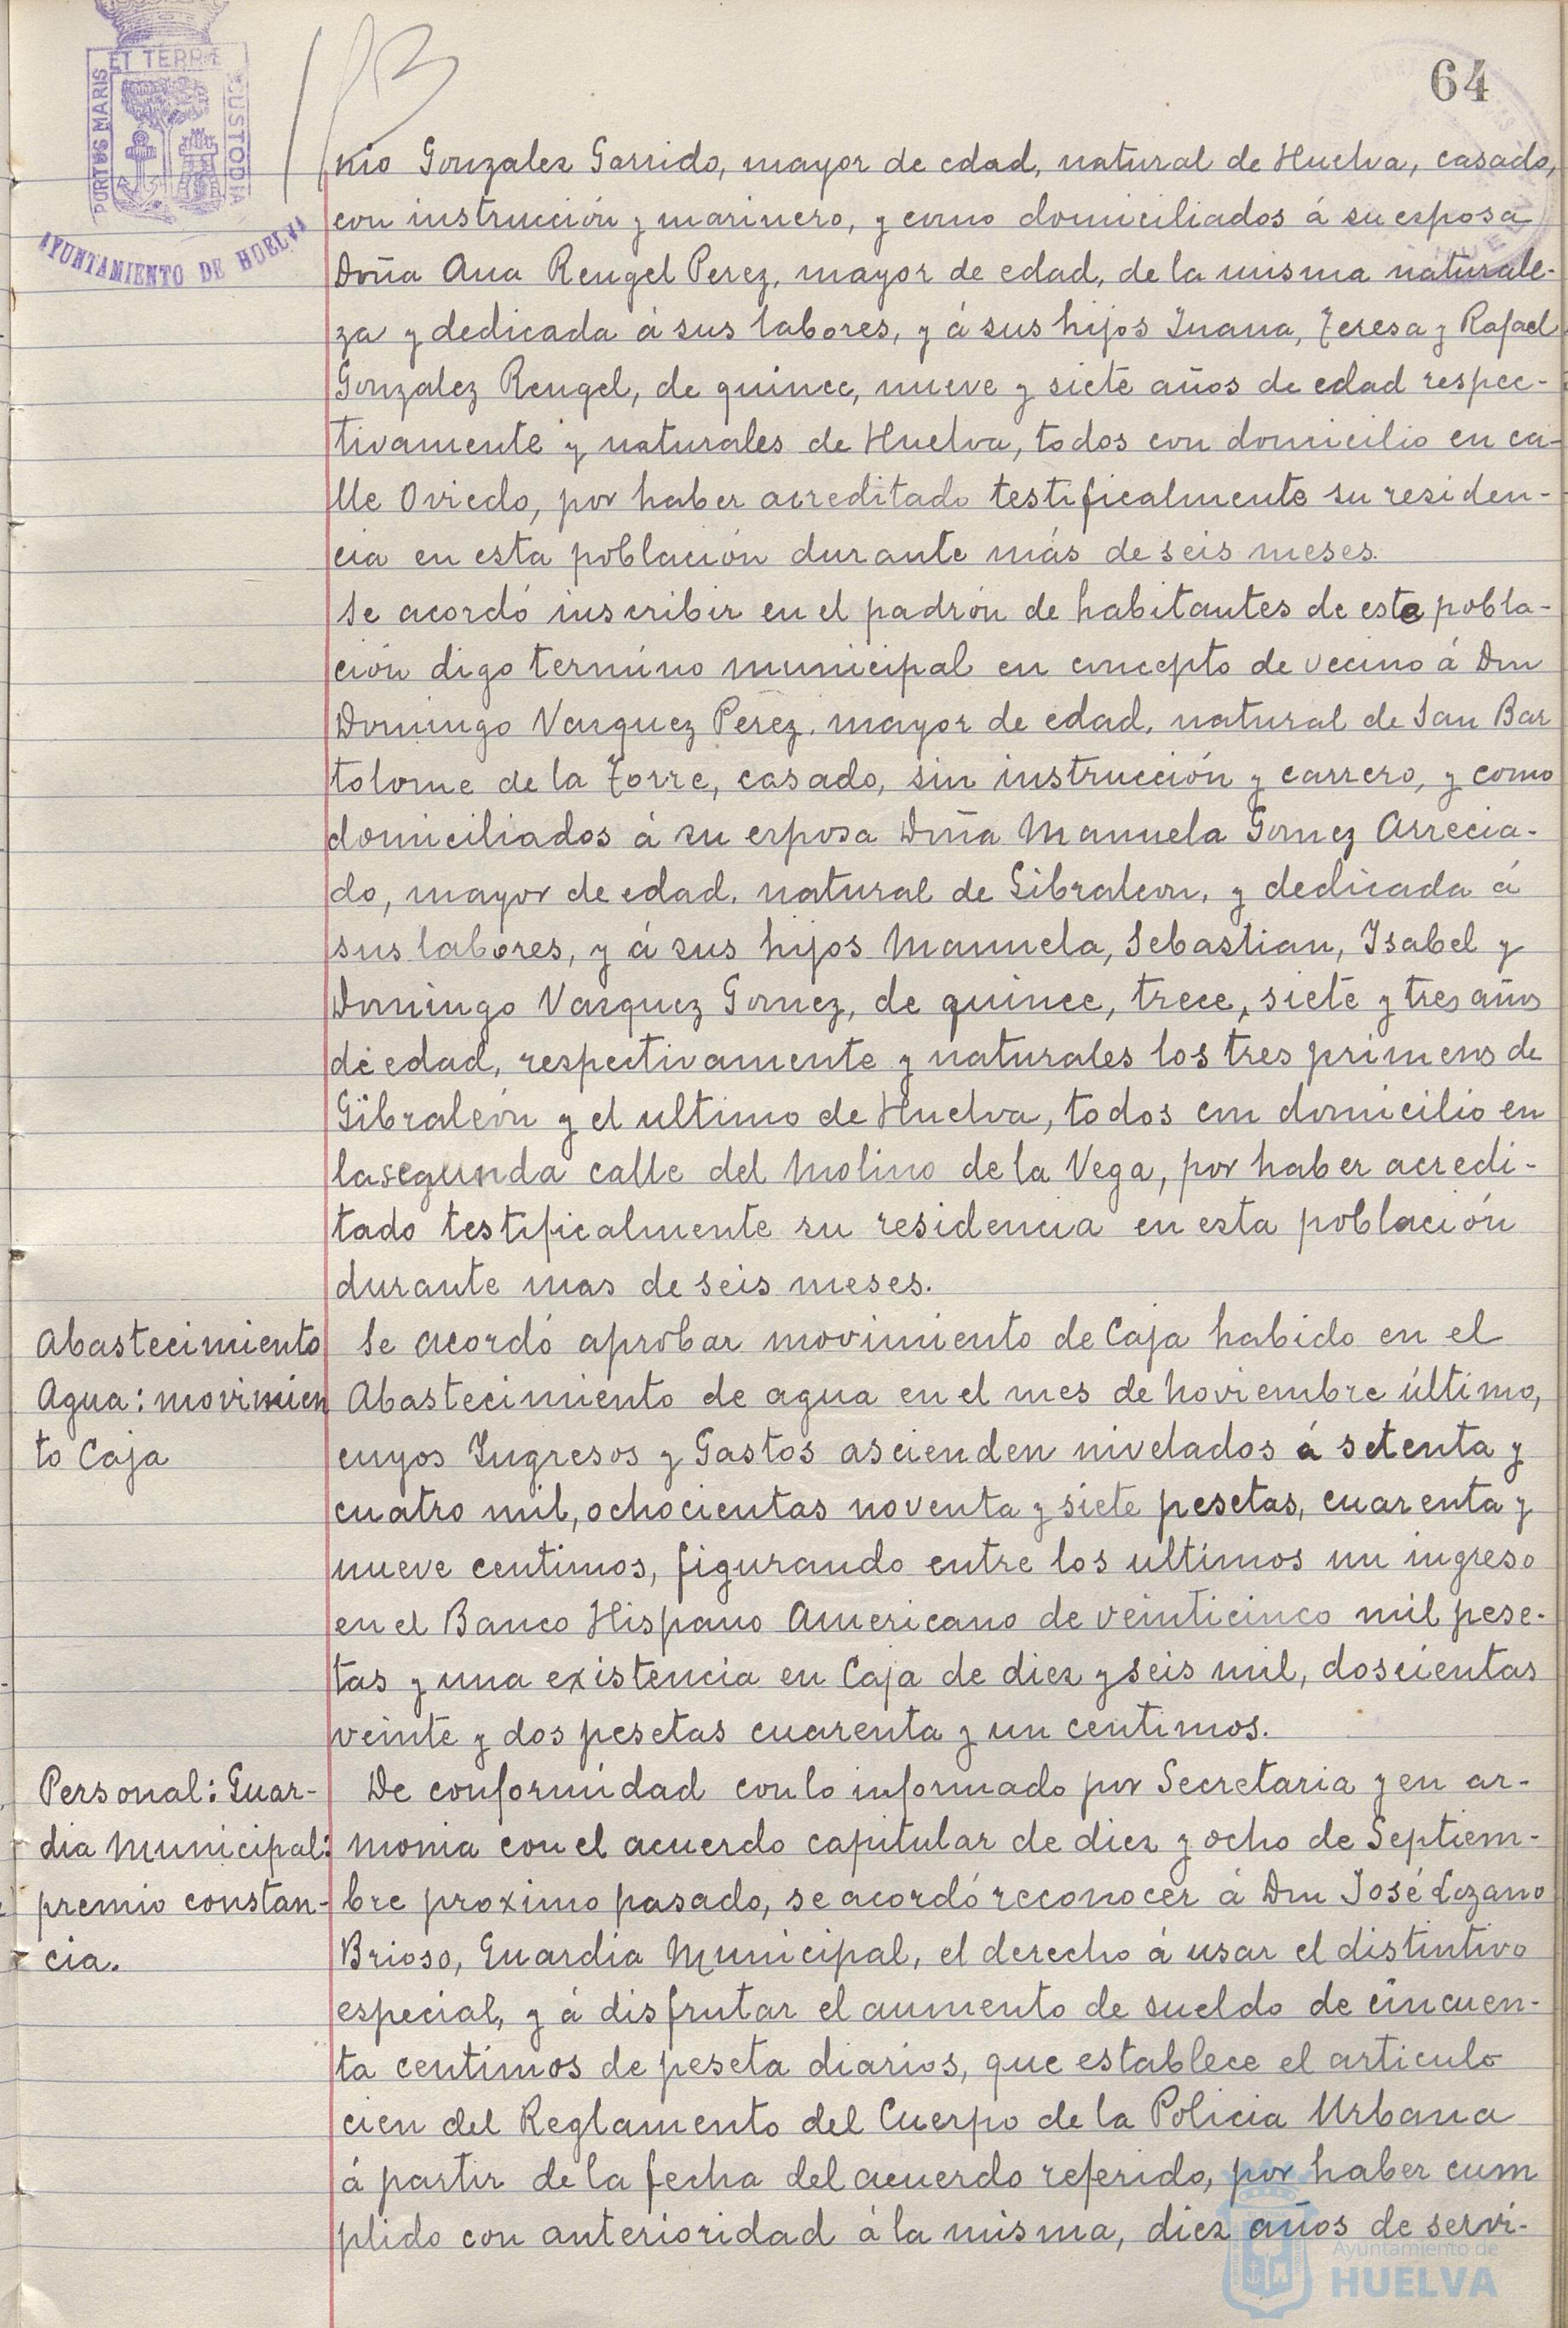 64
PORTUS MARIS ET TERRÆ CUSTODIA
AYUNTAMIENTO DE HUELVA
nio Gonzalez Garrido, mayor de edad, natural de Huelva, casado,
con instrucción y marinero, y como domiciliados á su esposa
Doña Ana Rengel Perez, mayor de edad, de la misma naturale-
za y dedicada á sus labores, y á sus hijos Juana, Teresa y Rafael
Gonzalez Rengel, de quince, nueve y siete años de edad respec-
tivamente y naturales de Huelva, todos con domicilio en ca-
lle Oviedo, por haber acreditado testificalmente su residen-
cia en esta población durante más de seis meses.
Se acordó inscribir en el padrón de habitantes de este pobla-
ción digo termino municipal en concepto de vecino á Don
Domingo Vazquez Perez, mayor de edad, natural de San Bar
tolome de la Torre, casado, sin instrucción y carrero, y como
domiciliados á su esposa Doña Manuela Gomez Arrecia-
do, mayor de edad, natural de Gibraleon, y dedicada á
sus labores, y á sus hijos Manuela, Sebastian, Isabel y
Domingo Vazquez Gomez, de quince, trece, siete y tres años
de edad, respectivamente y naturales los tres primeros de
Gibraleón y el ultimo de Huelva, todos con domicilio en
la segunda calle del Molino de la Vega, por haber acredi-
tado testificalmente su residencia en esta población
durante mas de seis meses.
Abastecimiento
Agua: movimien
to Caja
Se acordó aprobar movimiento de Caja habido en el
Abastecimiento de agua en el mes de Noviembre último,
cuyos Ingresos y Gastos ascienden nivelados á setenta y
cuatro mil, ochocientas noventa y siete pesetas, cuarenta y
nueve centimos, figurando entre los ultimos un ingreso
en el Banco Hispano Americano de veinticinco mil pese-
tas y una existencia en Caja de diez y seis mil, doscientas
veinte y dos pesetas cuarenta y un centimos.
Personal: Guar-
dia Municipal:
premio constan-
cia.
De conformidad con lo informado por Secretaria y en ar-
monia con el acuerdo capitular de diez y ocho de Septiem-
bre proximo pasado, se acordó reconocer á Don José Lozano
Brioso, Guardia Municipal, el derecho á usar el distintivo
especial, y á disfrutar el aumento de sueldo de cincuen-
ta centimos de peseta diarios, que establece el articulo
cien del Reglamento del Cuerpo de la Policia Urbana
á partir de la fecha del acuerdo referido, por haber cum
plido con anterioridad á la misma, diez años de servi-
Ayuntamiento de
HUELVA